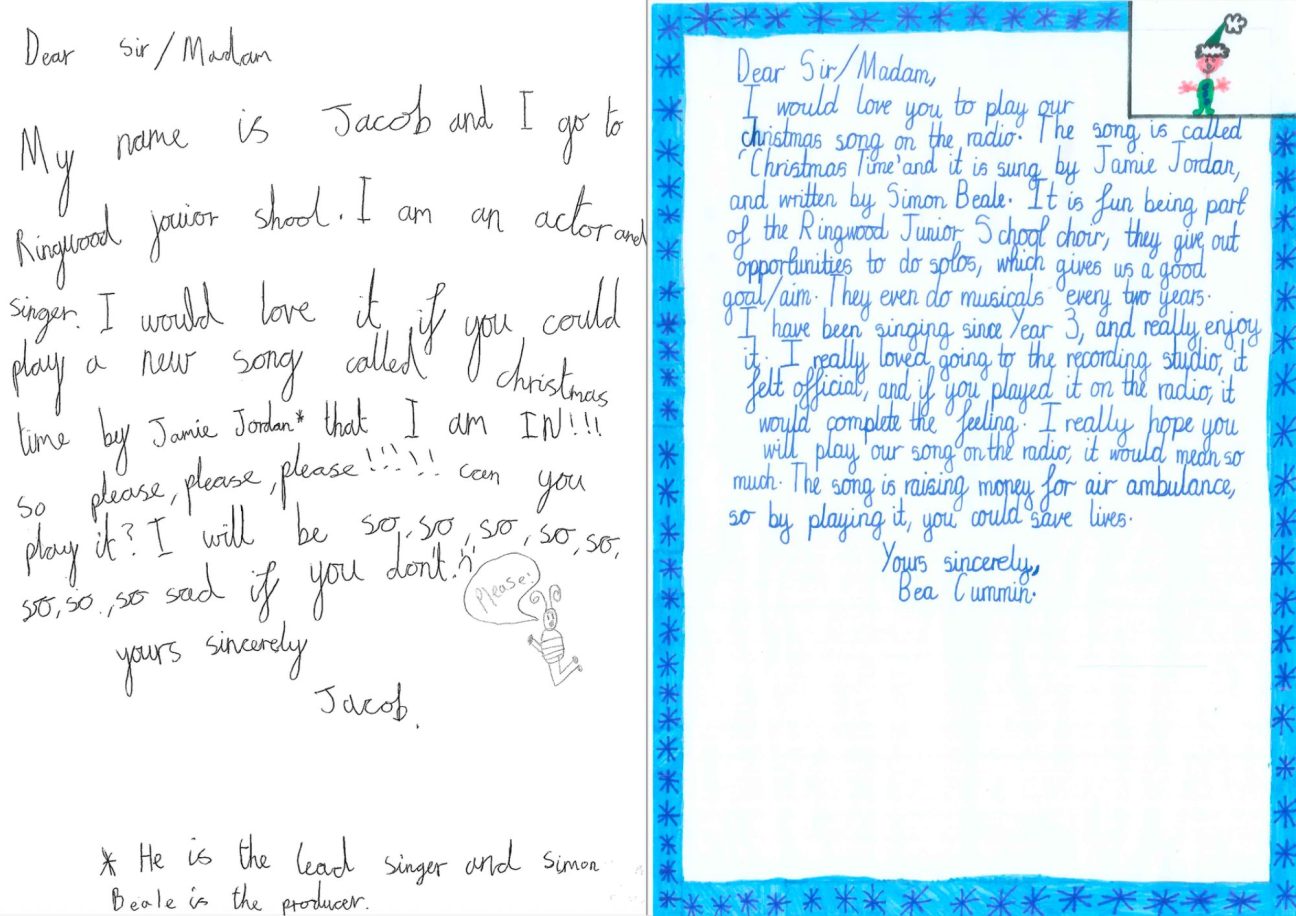 Dear Sir/Madam
My name is Jacob and I go to
Ringwood jouior shool. I am an actor and
singer. I would love it if you could
play a new song called christmas
time by Jamie Jordan* that I am IN!!!
so please, please, please!!!!! can you
play it? I will be so, so, so, so, so,
so, so, so sad if you don't!!
Please!
yours sincerely
Jacob.
* He is the lead singer and simon
Beale is the producer.
Dear Sir/Madam,
I would love you to play our
christmas song on the radio. The song is called
'Christmas Time' and it is sung by Jamie Jordan,
and written by Simon Beale. It is fun being part
of the Ringwood Junior School choir, they give out
opportunities to do solos, which gives us a good
goal/aim. They even do musicals every two years.
I have been singing since Year 3, and really enjoy
it. I really loved going to the recording studio, it
felt official, and if you played it on the radio, it
would complete the feeling. I really hope you
will play our song on the radio, it would mean so
much. The song is raising money for air ambulance,
so by playing it, you could save lives.
Yours sincerely,
Bea Cummin.